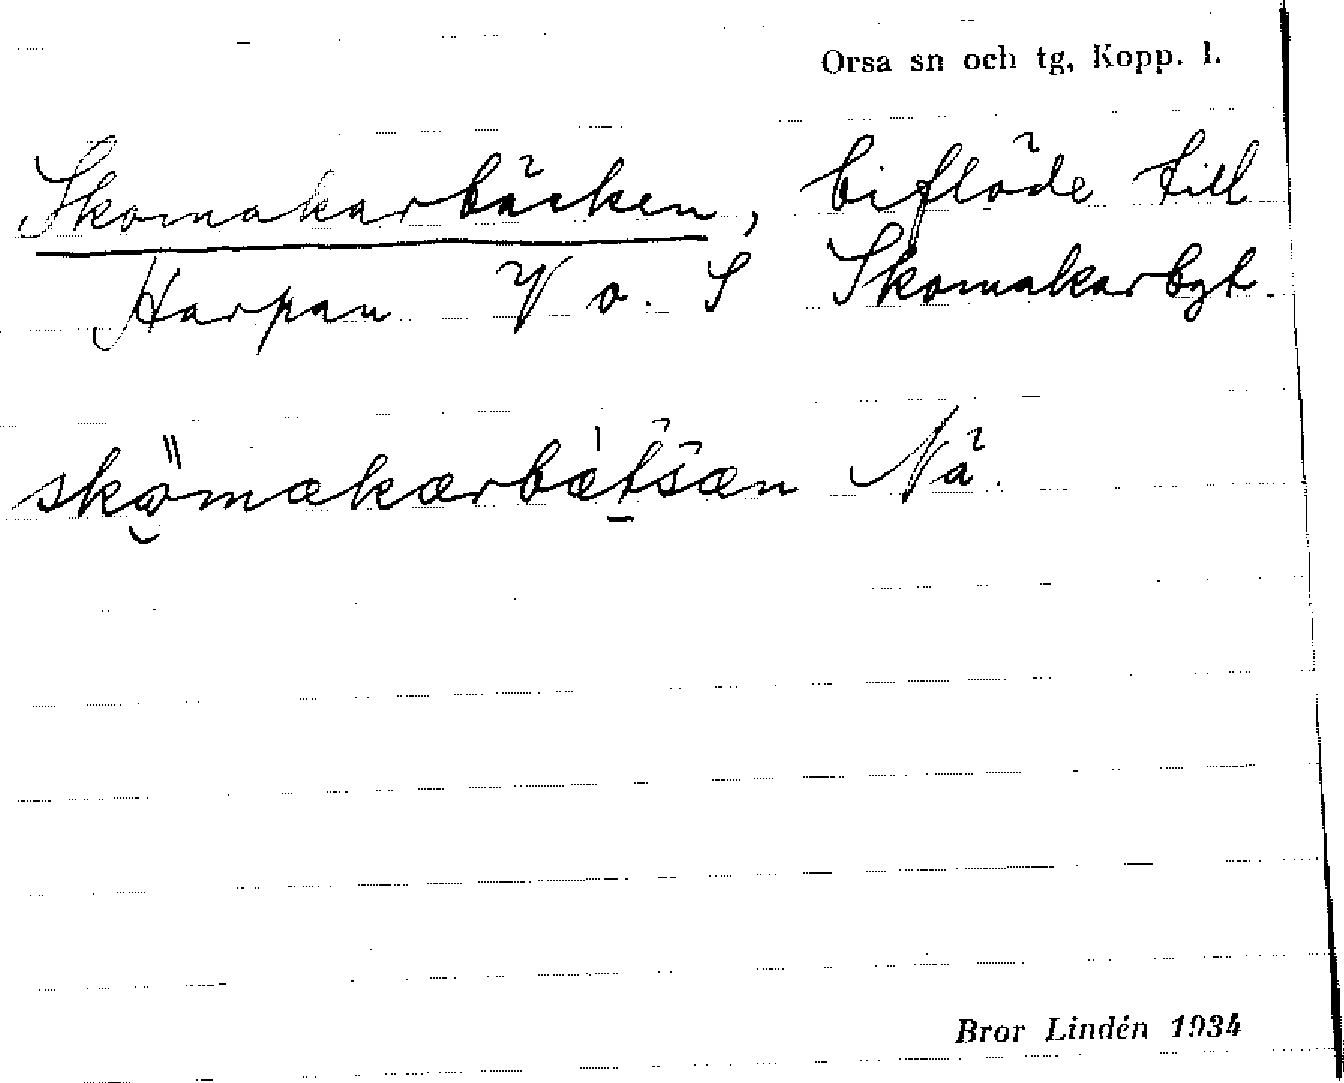 Orsa sn och tg, Kopp. l.
Skomakarbäcken, biflöde till
Harpan V o. S Skomakarbyt.
skömakarbätsan Nä.
Bror Lindén 1934